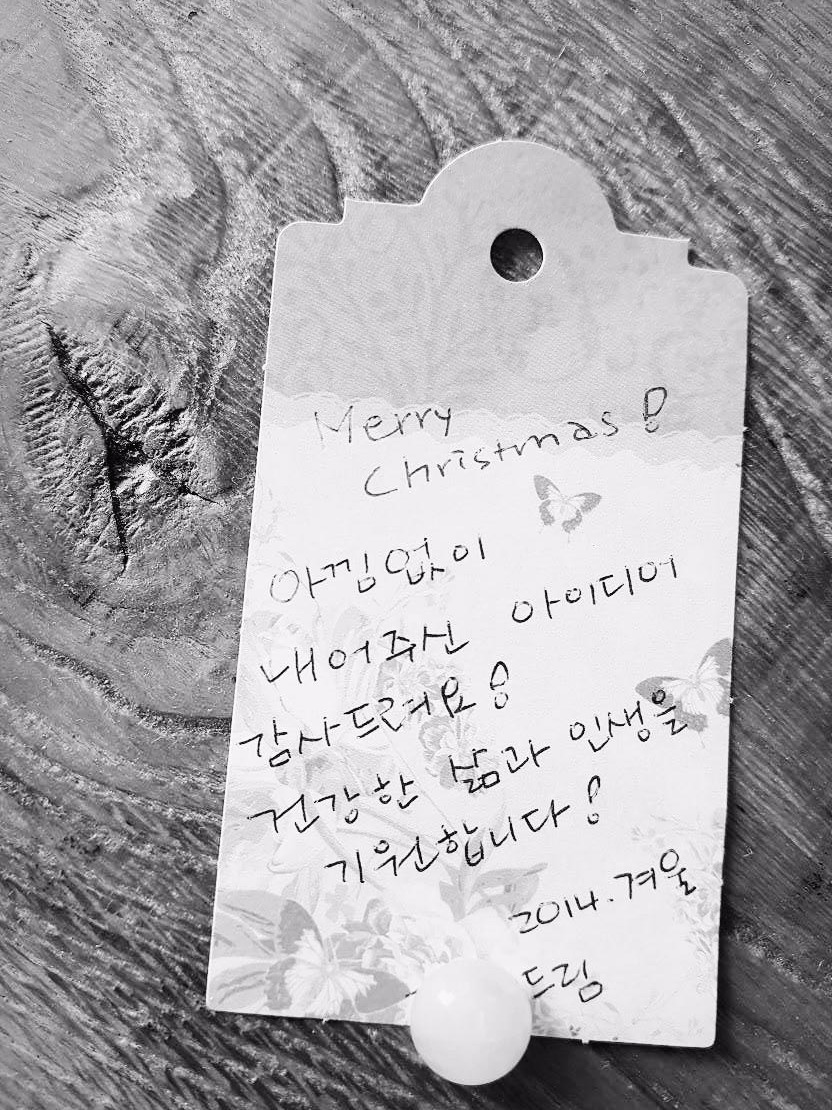 Merry
Christmas!
아낌없이
내어주신 아이디어
감사드려요!
건강한 삶과 인생을
기원합니다!
2014.겨울
드림